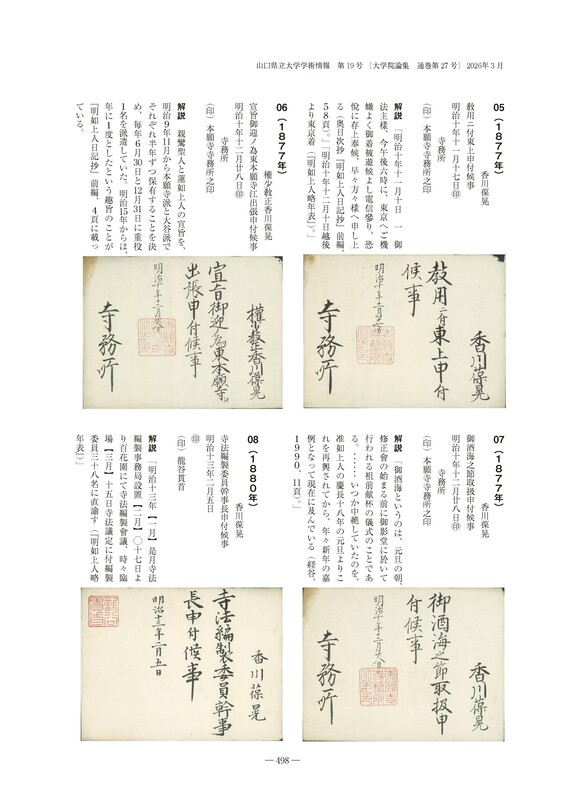 山口県立大学学術情報　第19号　〔大学院論集　通巻第27号〕　2026年3月
05（1877年）
香川保晃
教用ニ付東上申付候事
明治十年十一月十七日㊞
寺務所
（印）本願寺寺務所之印
解説　「明治十年十一月十日　一　御
法主様、今午後六時に、東京へご機
嫌よく御着被遊候よし電信参り、恐
悦に存上奉候、早々方々様へ申し上
る（奥日次抄『明如上人日記抄』前編、
58頁）。」「明治十年十二月十日越後
より東京着（『明如上人略年表』）。」
教用ニ付東上申付
候事
明治十年十一月十七日
寺務所
香川葆晃
06（1877年）
権少教正香川保晃
宣旨御迎ノ為東本願寺江出張申付候事
明治十年十二月廿八日㊞
寺務所
（印）本願寺寺務所之印
解説　親鸞聖人と蓮如上人の宣旨を、
明治9年11月から本願寺派と大谷派で
それぞれ半年ずつ保有することを決
め、毎年6月30日と12月31日に重役
1名を派遣していた。明治15年からは、
年に1度としたという趣旨のことが
『明如上人日記抄』前編、4頁に載っ
ている。
権少教正香川葆晃
宣旨御迎ノ為東本願寺江
出張申付候事
明治十年十二月廿八日
寺務所
07（1877年）
香川保晃
御酒海之節取扱申付候事
明治十年十二月廿八日㊞
寺務所
（印）本願寺寺務所之印
解説　「御酒海というのは、元旦の朝、
修正会の始まる前に御影堂に於いて
行われる祖前献杯の儀式のことであ
る。……いつか中絶していたのを、
准如上人の慶長十八年の元旦よりこ
れを再興されてから、年々新年の嘉
例となって現在に及んでいる（経谷、
1990、11頁）。」
香川葆晃
御酒海之節取扱申
付候事
明治十年十二月廿八日
寺務所
08（1880年）
香川保晃
寺法編製委員幹事長申付候事
明治十三年二月五日
㊞
（印）龍谷貫首
解説　「明治十三年【一月】是月寺法
編製事務局設置【二月】〇十七日よ
り百花園にて寺法編製會議、時々臨
場【三月】十五日寺法議定に付編製
委員三十八名に直諭す（『明如上人略
年表』）」
香川葆晃
寺法編製委員幹事
長申付候事
明治十三年二月五日
― 498 ―